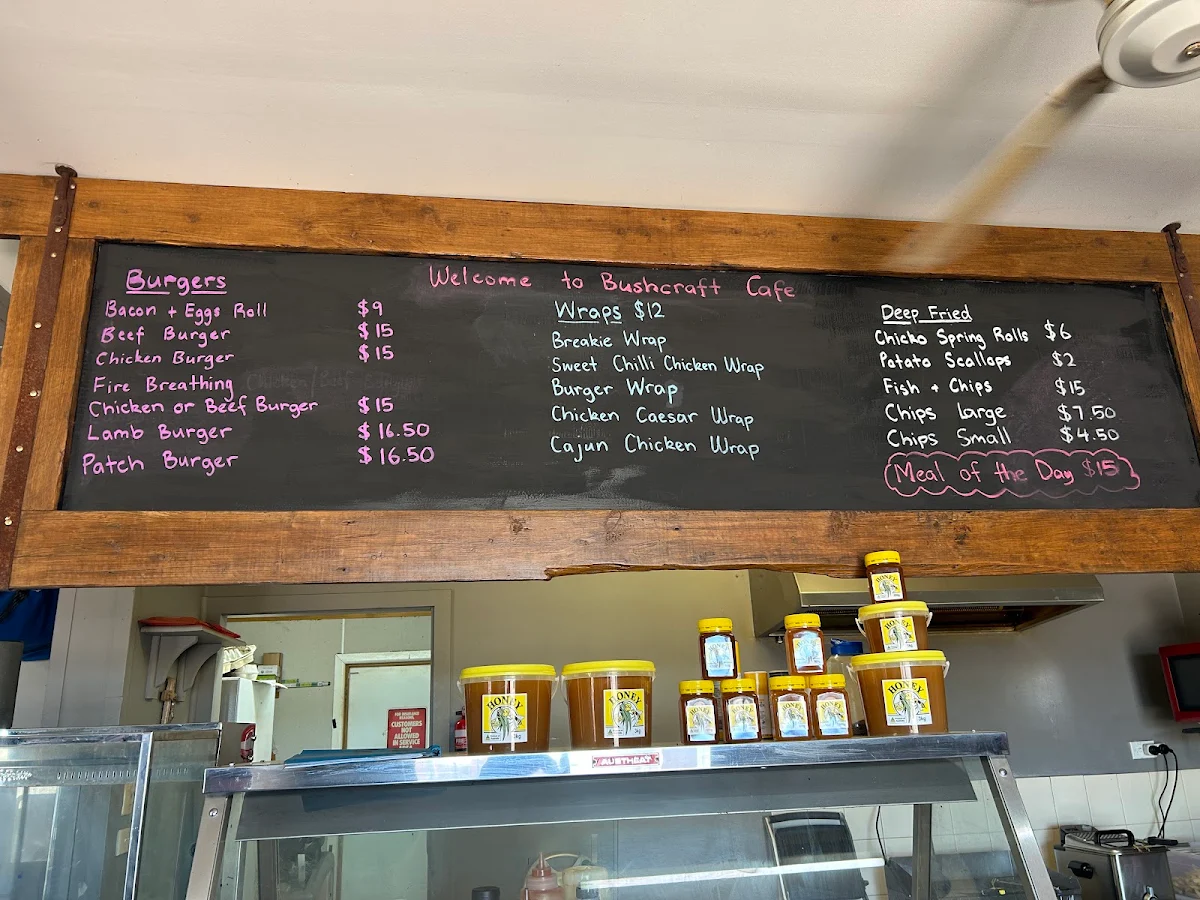 Welcome to Bushcraft Cafe
Burgers
Bacon + Eggs Roll $9
Beef Burger $15
Chicken Burger $15
Fire Breathing
Chicken or Beef Burger $15
Lamb Burger $16.50
Patch Burger $16.50
Wraps $12
Breakie Wrap
Sweet Chilli Chicken Wrap
Burger Wrap
Chicken Caesar Wrap
Cajun Chicken Wrap
Deep Fried
Chicko Spring Rolls $6
Potato Scallops $2
Fish + Chips $15
Chips Large $7.50
Chips Small $4.50
Meal of the Day $15
HONEY
HONEY
HONEY
HONEY
HONEY
3kg
CUSTOMERS
NOT
ALLOWED
IN SERVICE
AUSTHEAT